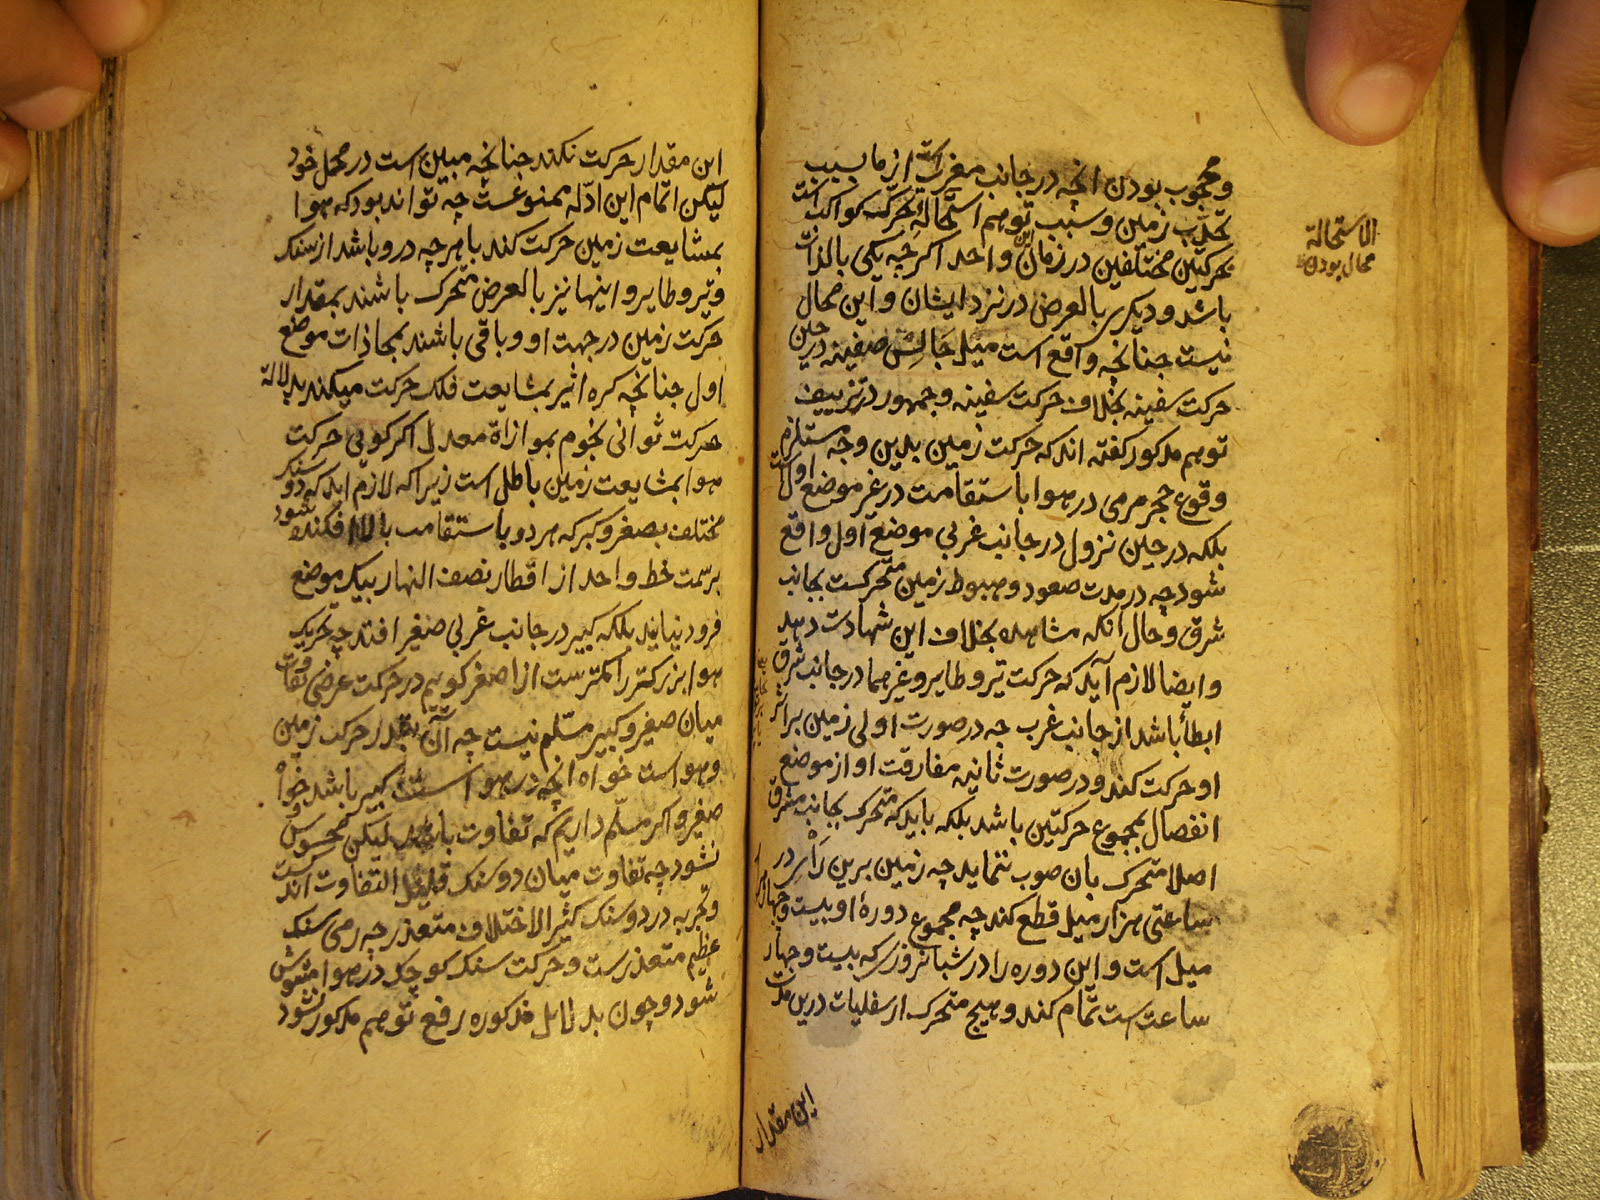 و محجوب بودن انچه در جانب مغربست از ما بسبب
تحدب زمین و سبب توهم استحالهٔ حرکت کواکب است
بحرکتین مختلفین در زمان واحد اکرچه یکی بالذات
باشد و دیکری بالعرض در نزد ایشان و این محال
نیست جنانچه واقع است میل جالس سفینه در حین
حرکت سفینه بخلاف حرکت سفینه و جمهور در تزییف
توهم مذکور کفته اند که حرکت زمین بدین وجه مستلزم
وقوع حجر مرمی در هوا باستقامت در غیر موضع اول است
بلکه در حین نزول در جانب غربی موضع اول واقع
شود چه در مدت صعود و هبوط زمین متحرکست بجانب
شرق و حال آنکه مشاهده بخلاف این شهادت دهد
و ایضا لازم آید که حرکت تیر و طایر و غیرهما در جانب شرق
ابطأ باشد از جانب غرب جه در صورت اولی زمین براثر
او حرکت کند و در صورت ثانیه مفارقت او از موضع
انفصال بمجموع حرکتین باشد بلکه باید که متحرک بجانب مشرق
اصلا متحرک بان صوب ننماید چه زمین برین رای در
ساعتی هزار میل قطع کند چه مجموع دورهٔ او بیست و چهار
میل است و این دوره را در شبانروزی که بیست و جهار
ساعت است تمام کند و هیچ متحرک از سفلیات درین مدت
این مقدار
الاستحالة
محال بودن
این مقدار حرکت نکند جنانچه مبین است در محل خود
لیکن اتمام این ادله ممنوعست چه تواند بود که هوا
بمشایعت زمین حرکت کند با هرچه درو باشد از سنک
و تیر و طایر و اینها نیز بالعرض متحرک باشند بمقدار
حرکت زمین در جهت او و باقی باشند بمحاذات موضع
اول جنانچه کره اثیر بمشایعت فلک حرکت میکند بدلالة
حرکت ثوانی نجوم بموازاة معدل اکر کویی حرکت
هوا بمشایعت زمین باطل است زیرا که لازم اید که دو سنک
مختلف بصغر و کبر که هر دو باستقامت بالا افکنده شود
بر سمت خط واحد از اقطار نصف النهار بیک موضع
فرود نیاید بلکه کبیر در جانب غربی صغیر افتد چه تحریک
هوا بزرکتر را کمترست از اصغر کوییم در حرکت عرضی تفاوت
میان صغیر و کبیر مسلم نیست چه آن بقدر حرکت زمین
و هواست خواه انچه در هواست کبیر باشد خواه
صغیر و اکر مسلم داریم که تفاوت باشد لیکن محسوس
نشود چه تفاوت میان دو سنک قلیل التفاوت اندکست
و تجربه در دو سنک کثیر الاختلاف متعذر چه رمی سنک
عظیم متعذرست و حرکت سنک کوچک در هوا مشوش
شود و چون بدلایل مذکوره رفع توهم مذکور نشود